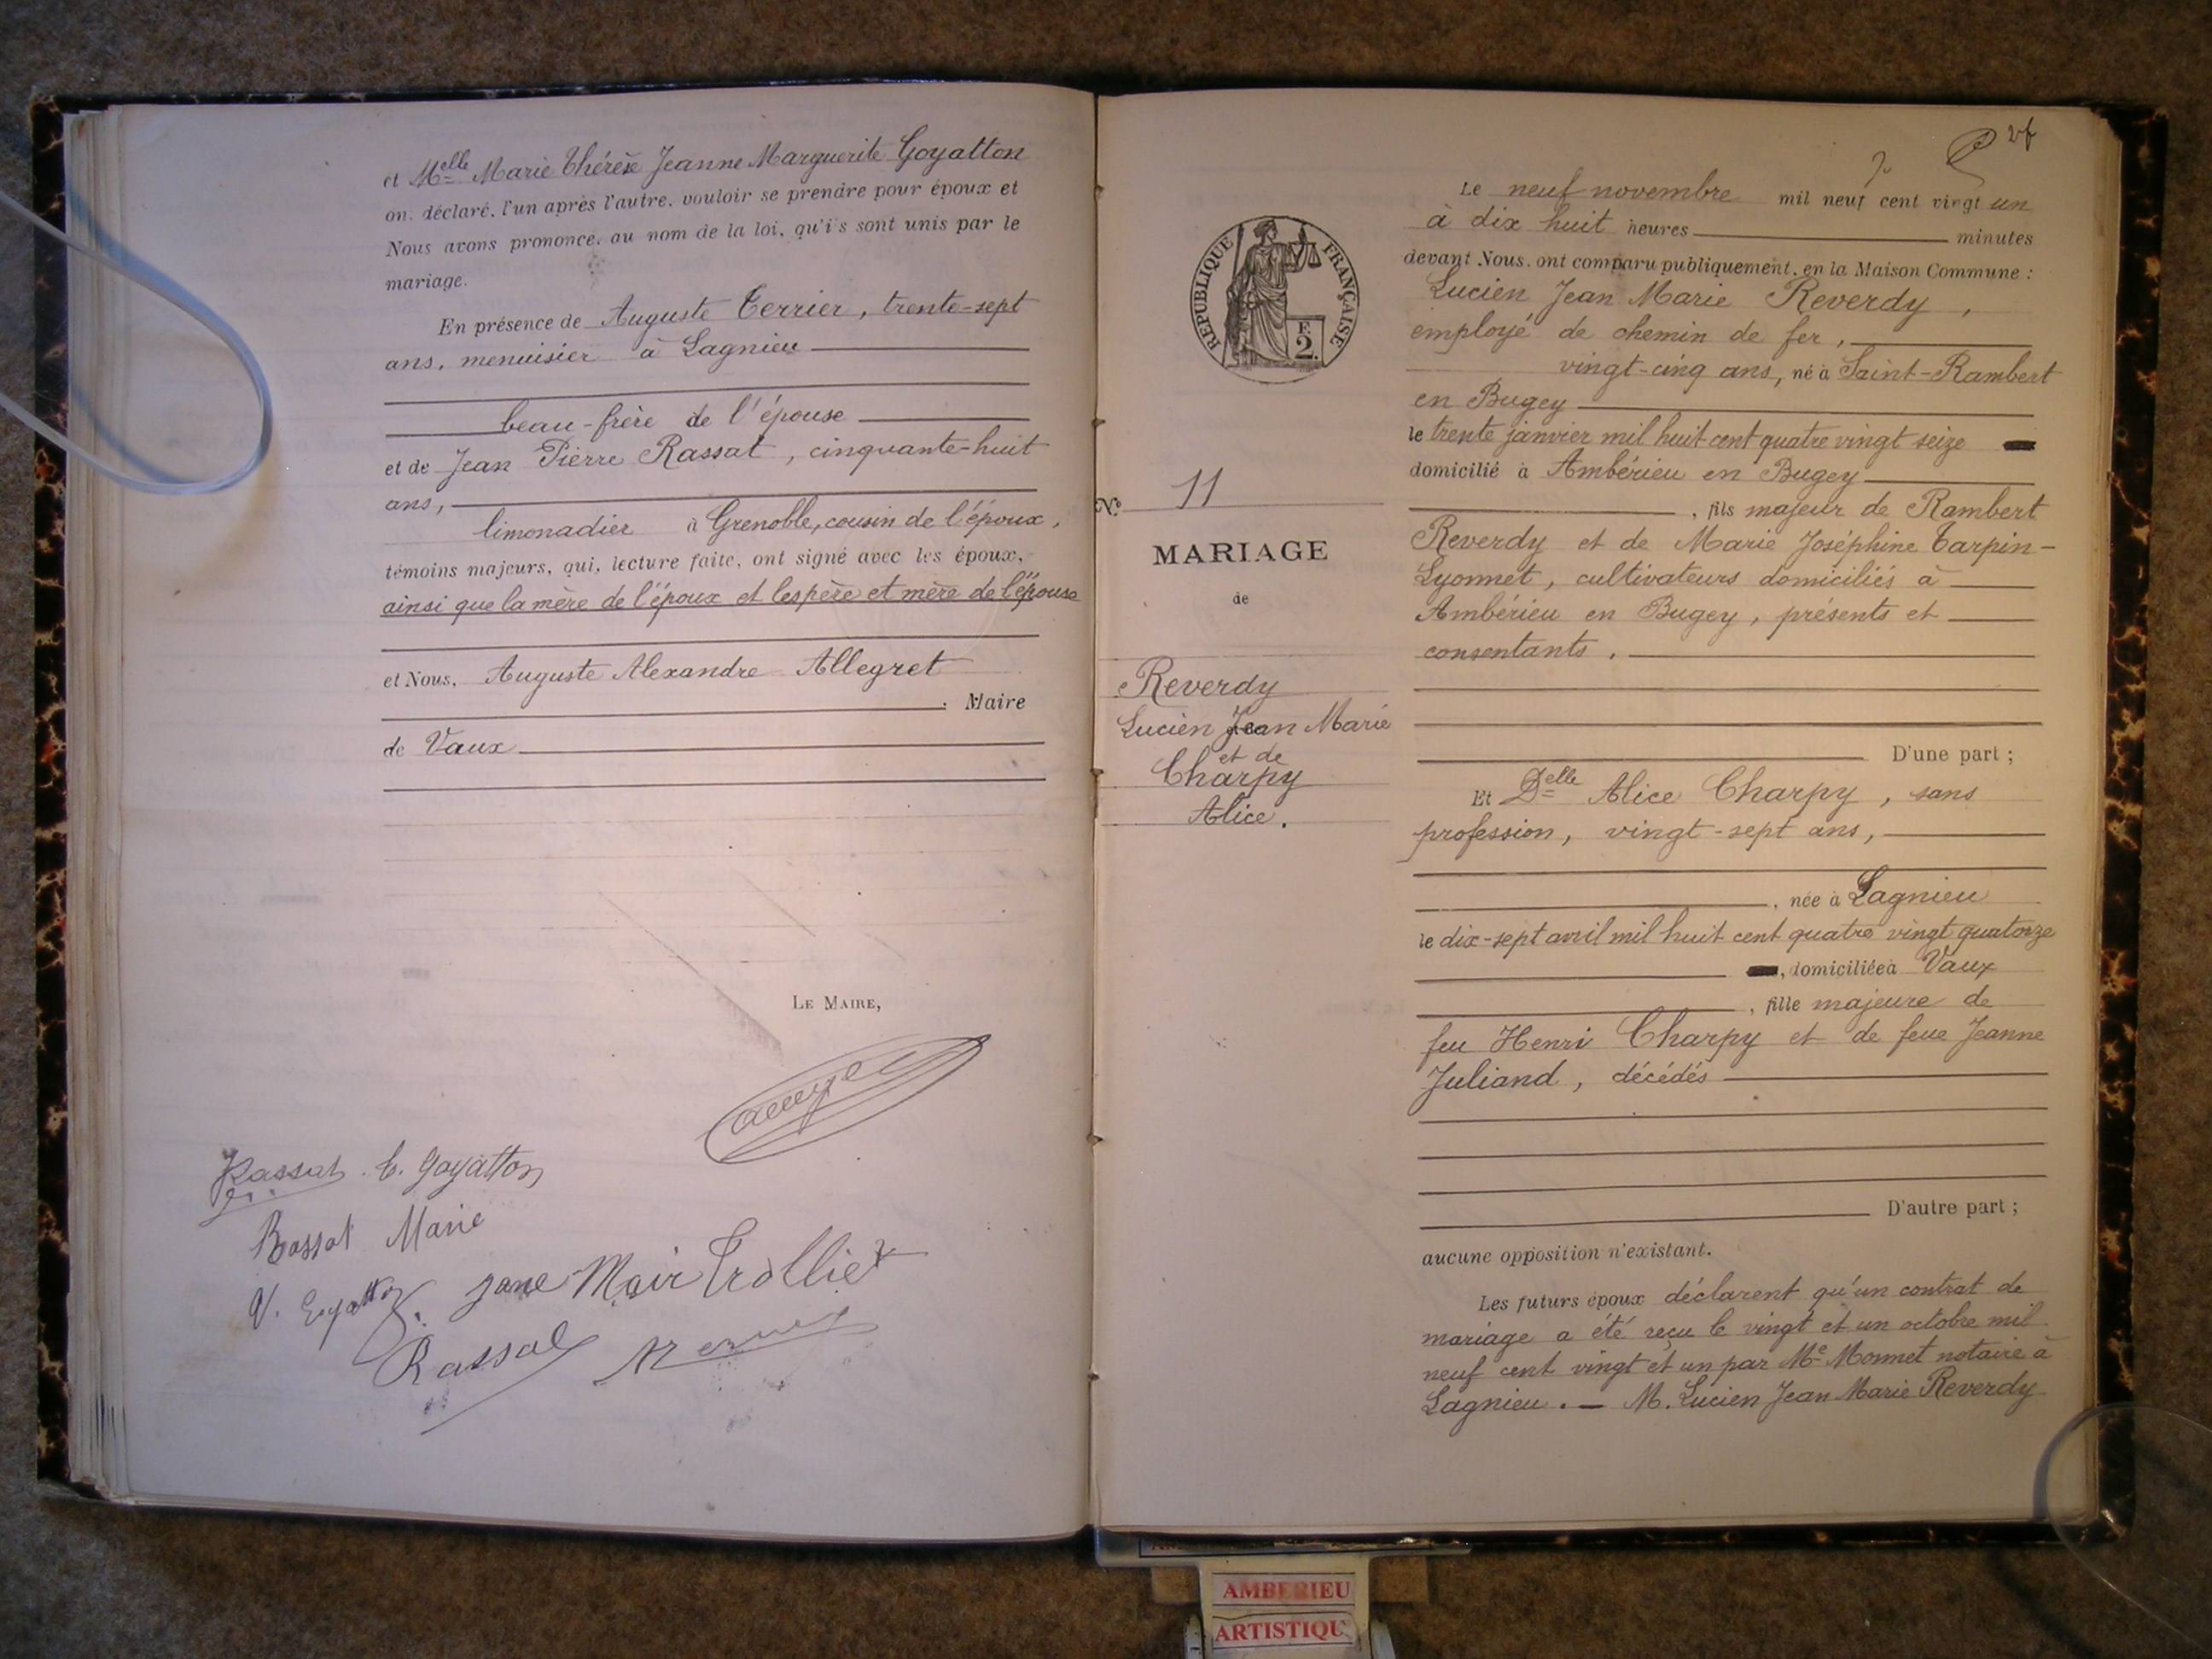 et Melle Marie Thérèse Jeanne Marguerite Goyatton
on. déclaré, l'un après l'autre, vouloir se prendre pour époux et
Nous avons prononcé, au nom de la loi, qu'i's sont unis par le
mariage.
En présence de Auguste Terrier, trente-sept
ans, menuisier à Lagnieu
beau-frère de l'épouse
et de Jean Pierre Rassat, cinquante-huit
ans,
limonadier à Grenoble, cousin de l'époux,
témoins majeurs, qui, lecture faite, ont signé avec les époux,
ainsi que la mère de l'époux et les père et mère de l'épouse
et Nous, Auguste Alexandre Allegret
, Maire
de Vaux
LE MAIRE,
Rassat T. Goyatton
Rassat Marie
V. Goyatton Jane Mair Trolliet
Rassat
26
Le neuf novembre mil neuf cent vingt un
à dix huit heures minutes
devant Nous, ont comparu publiquement, en la Maison Commune :
Lucien Jean Marie Reverdy,
employé de chemin de fer,
vingt-cinq ans, né à Saint-Rambert
en Bugey
le trente janvier mil huit cent quatre vingt seize
domicilié à Ambérieu en Bugey
, fils majeur de Rambert
Reverdy et de Marie Joséphine Tarpin-
Lyonnet, cultivateurs domiciliés à
Ambérieu en Bugey, présents et
consentants.
D'une part ;
Et Delle Alice Charpy, sans
profession, vingt-sept ans,
, née à Lagnieu
le dix-sept avril mil huit cent quatre vingt quatorze
, domiciliée à Vaux
, fille majeure de
feu Henri Charpy et de feue Jeanne
Juliand, décédés
D'autre part ;
aucune opposition n'existant.
Les futurs époux déclarent qu'un contrat de
mariage a été reçu le vingt et un octobre mil
neuf cent vingt et un par Me Monnet notaire à
Lagnieu. — M. Lucien Jean Marie Reverdy
RÉPUBLIQUE FRANÇAISE
F.
2.
No 11
MARIAGE
de
Reverdy
Lucien Jean Marie
et de
Charpy
Alice.
AMBERIEU
ARTISTIQU